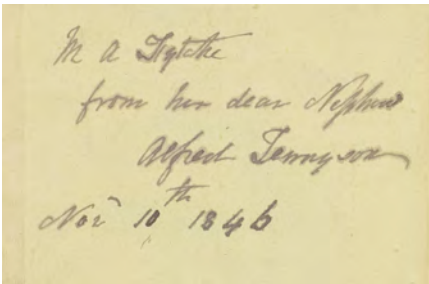 M A Fytche
from her dear Nephew
Alfred Tennyson
Nov 10th 1846